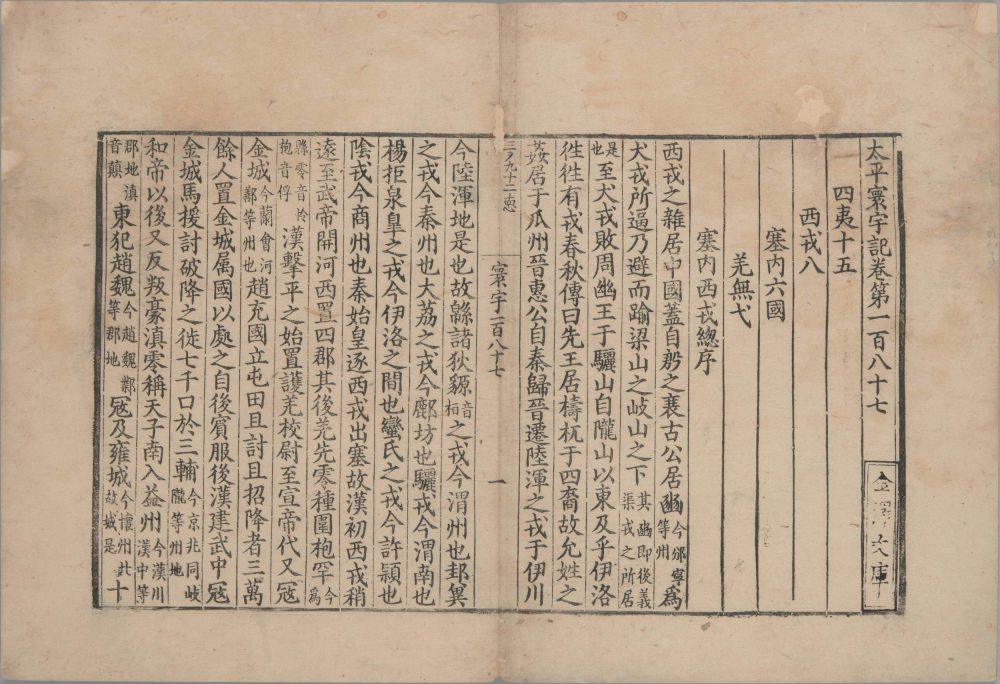 太平寰宇記卷第一百八十七
金澤文庫
四夷十五
西戎八
塞內六國
羌無弋
塞內西戎總序
西戎之雜居中國蓋自殷之衰古公居豳今邠寧等州爲
犬戎所逼乃避而踰梁山之岐山之下其豳即後義渠戎之所居
是也至犬戎敗周幽王于驪山自隴山以東及乎伊洛
徃徃有戎春秋傳曰先王居檮杌于四裔故允姓之
姦居于瓜州晉惠公自秦歸晉遷陸渾之戎于伊川
寰宇一百八十七
一
今陸渾地是也故緜諸狄豲音桓之戎今渭州也邽冀
之戎今秦州也大荔之戎今鄜坊也驪戎今渭南也
楊拒泉臯之戎今伊洛之間也蠻氏之戎今許潁也
陰戎今商州也秦始皇逐西戎出塞故漢初西戎稍
遠至武帝開河西置四郡其後羌先零種圍枹罕今爲
縣零音怜枹音俘漢擊平之始置護羌校尉至宣帝代又冦
金城今蘭會河鄯等州也趙充國立屯田且討且招降者三萬
餘人置金城属國以處之自後賓服後漢建武中冦
金城馬援討破降之徙七千口於三輔今京兆同岐隴等州地
和帝以後又反叛豪滇零稱天子南入益州今漢川漢中等
郡地滇音顛東犯趙魏今趙魏鄴等郡地冦及雍城今懷州北故城是十